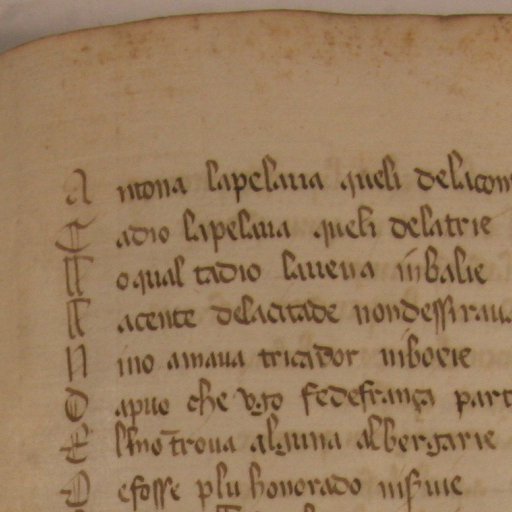 A ntona lapelaua queli delacon
T adio lapelaua queli delatrie
E oqual tadio laueua inbalie
E acente delacitade nondessiraua
N ino amaua tricador niboeie
D apuo che vgo fedefrança part
E lino troua alguna albergarie
D efosse plu honorado